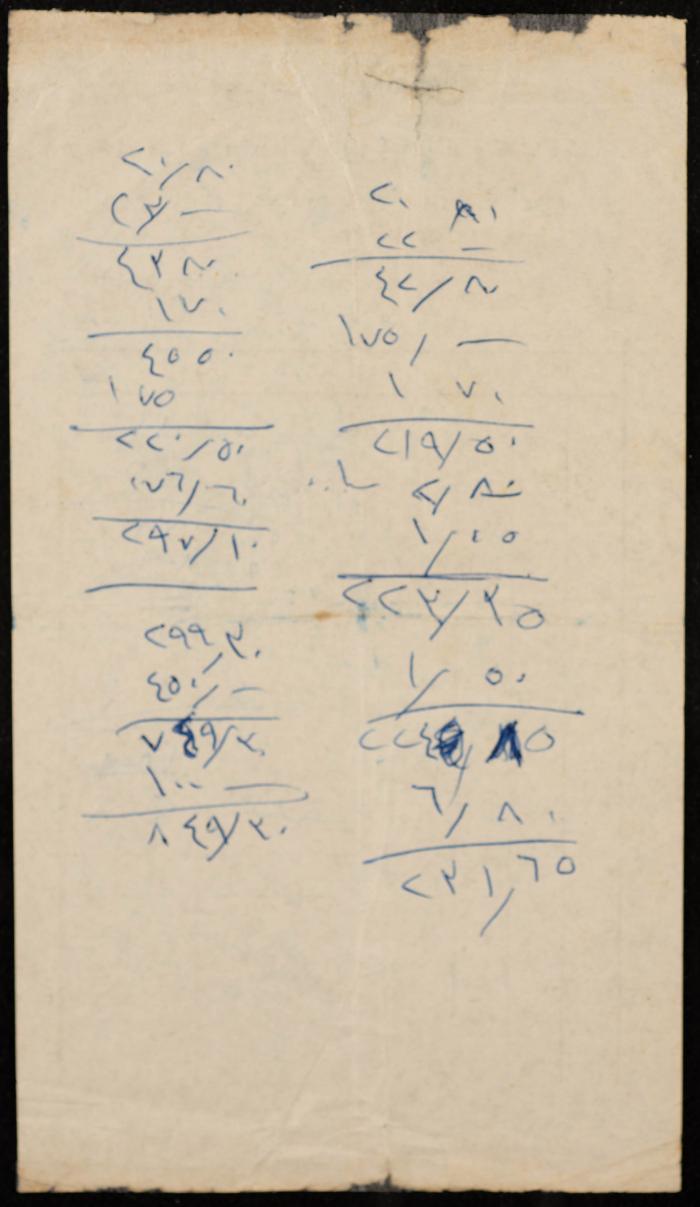 ٢٠ ٨٠
٢٢ —
٤٢/٨٠
١٧٥/ —
١ ٧٠
٢١٩/٥٠
٢/٨٠
١/٠٥
٢٢٣/٣٥
١/٥٠
٢٢٤/٨٥
٦/٨٠
٢٣١,٦٥
٢٠/٨٠
٢٣/ —
٤٣ ٨٠
١٧٠
٤٥٥٠
١٧٥
٢٢٠/٥٠
٠٧٦/٦٠
٢٩٧/١٠
٢٩٩/٢٠
٤٥٠/ —
٧٤٩/٢٠
١٠٠ —
٨٤٩/٢٠